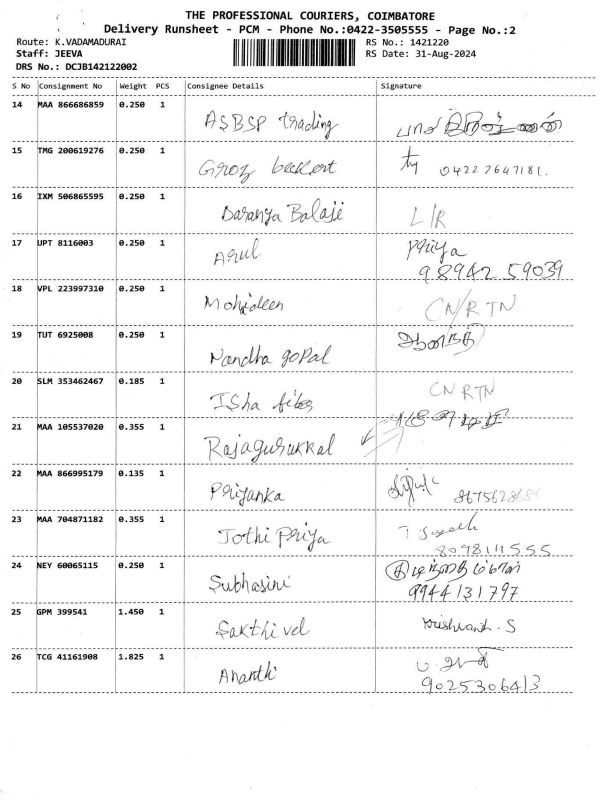 THE PROFESSIONAL COURIERS, COIMBATORE
Delivery Runsheet - PCM - Phone No.:0422-3505555 - Page No.:2
Route: K.VADAMADURAI RS No.: 1421220
Staff: JEEVA RS Date: 31-Aug-2024
DRS No.: DCJB142122002
S No Consignment No Weight PCS Consignee Details Signature
14 MAA 866686859 0.250 1 ASBSP trading
15 TMG 200619276 0.250 1 Groz beckert 0422 7647181.
16 IXM 506865595 0.250 1 Daranya Balaji L/R
17 UPT 8116003 0.250 1 Arul Priya
98942 59039
18 VPL 223997310 0.250 1 Mohideen CN/RTN
19 TUT 6925008 0.250 1 Nandha gopal ஆனந்தி
20 SLM 353462467 0.185 1 Isha CN RTN
21 MAA 105537020 0.355 1 Rajagurukkal
22 MAA 866995179 0.135 1 Priyanka
23 MAA 704871182 0.355 1 Jothi Priya
8098111555
24 NEY 60065115 0.250 1 Subhasini
9944131797
25 GPM 399541 1.450 1 Sakthivel Krishvanth. S
26 TCG 41161908 1.825 1 Ananthi
9025306413